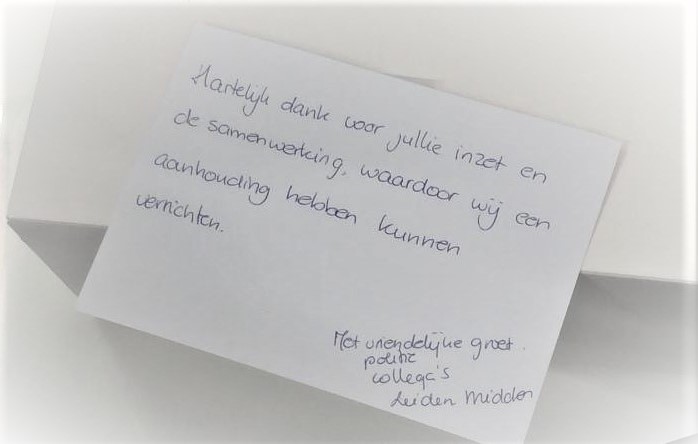 Hartelijk dank voor jullie inzet en
de samenwerking, waardoor wij een
aanhouding hebben kunnen
verrichten.
Met vriendelijke groet.
politie
collega's
Leiden Midden